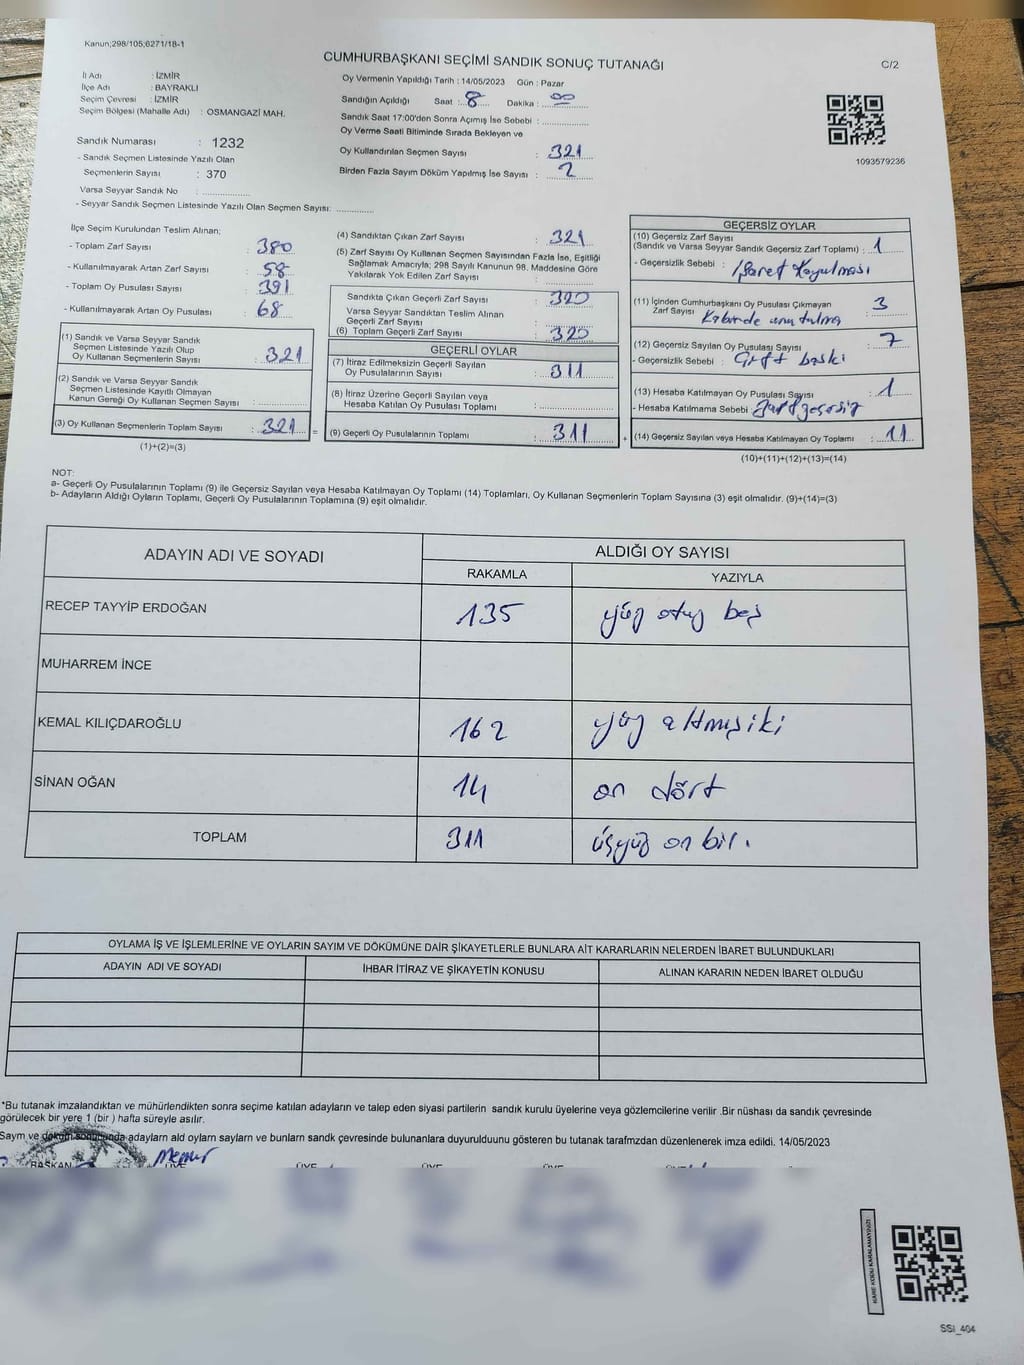 Kanun;298/105;6271/18-1
CUMHURBAŞKANI SEÇİMİ SANDIK SONUÇ TUTANAĞI
C/2
İl Adı : İZMİR
İlçe Adı : BAYRAKLI
Seçim Çevresi : İZMİR
Seçim Bölgesi (Mahalle Adı) : OSMANGAZİ MAH.
Sandık Numarası : 1232
- Sandık Seçmen Listesinde Yazılı Olan
Seçmenlerin Sayısı : 370
Varsa Seyyar Sandık No :
- Seyyar Sandık Seçmen Listesinde Yazılı Olan Seçmen Sayısı:
Oy Vermenin Yapıldığı Tarih : 14/05/2023 Gün : Pazar
Sandığın Açıldığı Saat : 8 Dakika : 00
Sandık Saat 17:00'den Sonra Açımış İse Sebebi :
Oy Verme Saati Bitiminde Sırada Bekleyen ve
Oy Kullandırılan Seçmen Sayısı : 321
Birden Fazla Sayım Döküm Yapılmış İse Sayısı : 2
1093579236
İlçe Seçim Kurulundan Teslim Alınan;
- Toplam Zarf Sayısı : 380
- Kullanılmayarak Artan Zarf Sayısı : 58
- Toplam Oy Pusulası Sayısı : 391
- Kullanılmayarak Artan Oy Pusulası : 68
(1) Sandık ve Varsa Seyyar Sandık
Seçmen Listesinde Yazılı Olup
Oy Kullanan Seçmenlerin Sayısı : 321
(2) Sandık ve Varsa Seyyar Sandık
Seçmen Listesinde Kayıtlı Olmayan
Kanun Gereği Oy Kullanan Seçmen Sayısı :
(3) Oy Kullanan Seçmenlerin Toplam Sayısı : 321 =
(1)+(2)=(3)
(4) Sandıktan Çıkan Zarf Sayısı : 321
(5) Zarf Sayısı Oy Kullanan Seçmen Sayısından Fazla İse, Eşitliği
Sağlamak Amacıyla; 298 Sayılı Kanunun 98. Maddesine Göre
Yakılarak Yok Edilen Zarf Sayısı :
Sandıkta Çıkan Geçerli Zarf Sayısı : 320
Varsa Seyyar Sandıktan Teslim Alınan
Geçerli Zarf Sayısı :
(6) Toplam Geçerli Zarf Sayısı : 320
GEÇERLİ OYLAR
(7) İtiraz Edilmeksizin Geçerli Sayılan
Oy Pusulalarının Sayısı : 311
(8) İtiraz Üzerine Geçerli Sayılan veya
Hesaba Katılan Oy Pusulası Toplamı :
(9) Geçerli Oy Pusulalarının Toplamı : 311 +
GEÇERSİZ OYLAR
(10) Geçersiz Zarf Sayısı
(Sandık ve Varsa Seyyar Sandık Geçersiz Zarf Toplamı) : 1
- Geçersizlik Sebebi : İşaret Koyulması
(11) İçinden Cumhurbaşkanı Oy Pusulası Çıkmayan
Zarf Sayısı : 3
Kabinde unutulma
(12) Geçersiz Sayılan Oy Pusulası Sayısı : 7
- Geçersizlik Sebebi : Çift baskı
(13) Hesaba Katılmayan Oy Pusulası Sayısı : 1
- Hesaba Katılmama Sebebi : Zarf geçersiz
(14) Geçersiz Sayılan veya Hesaba Katılmayan Oy Toplamı : 11
(10)+(11)+(12)+(13)=(14)
NOT:
a- Geçerli Oy Pusulalarının Toplamı (9) ile Geçersiz Sayılan veya Hesaba Katılmayan Oy Toplamı (14) Toplamları, Oy Kullanan Seçmenlerin Toplam Sayısına (3) eşit olmalıdır. (9)+(14)=(3)
b- Adayların Aldığı Oyların Toplamı, Geçerli Oy Pusulalarının Toplamına (9) eşit olmalıdır.
ADAYIN ADI VE SOYADI
ALDIĞI OY SAYISI
RAKAMLA YAZIYLA
RECEP TAYYİP ERDOĞAN 135 yüz otuz beş
MUHARREM İNCE
KEMAL KILIÇDAROĞLU 162 yüz altmış iki
SİNAN OĞAN 14 on dört
TOPLAM 311 üçyüz on bir.
OYLAMA İŞ VE İŞLEMLERİNE VE OYLARIN SAYIM VE DÖKÜMÜNE DAİR ŞİKAYETLERLE BUNLARA AİT KARARLARIN NELERDEN İBARET BULUNDUKLARI
ADAYIN ADI VE SOYADI İHBAR İTİRAZ VE ŞİKAYETİN KONUSU ALINAN KARARIN NEDEN İBARET OLDUĞU
*Bu tutanak imzalandıktan ve mühürlendikten sonra seçime katılan adayların ve talep eden siyasi partilerin sandık kurulu üyelerine veya gözlemcilerine verilir .Bir nüshası da sandık çevresinde
görülecek bir yere 1 (bir ) hafta süreyle asılır.
Saym ve döküm sonucunda adayların ald oylarn saylarn ve bunlarn sandk çevresinde bulunanlara duyurulduunu gösteren bu tutanak tarafmzdan düzenlenerek imza edildi. 14/05/2023
BAŞKAN Memur ÜYE ÜYE ÜYE ÜYE
KARE KODU KARALAMAYINIZ!
SSI_404